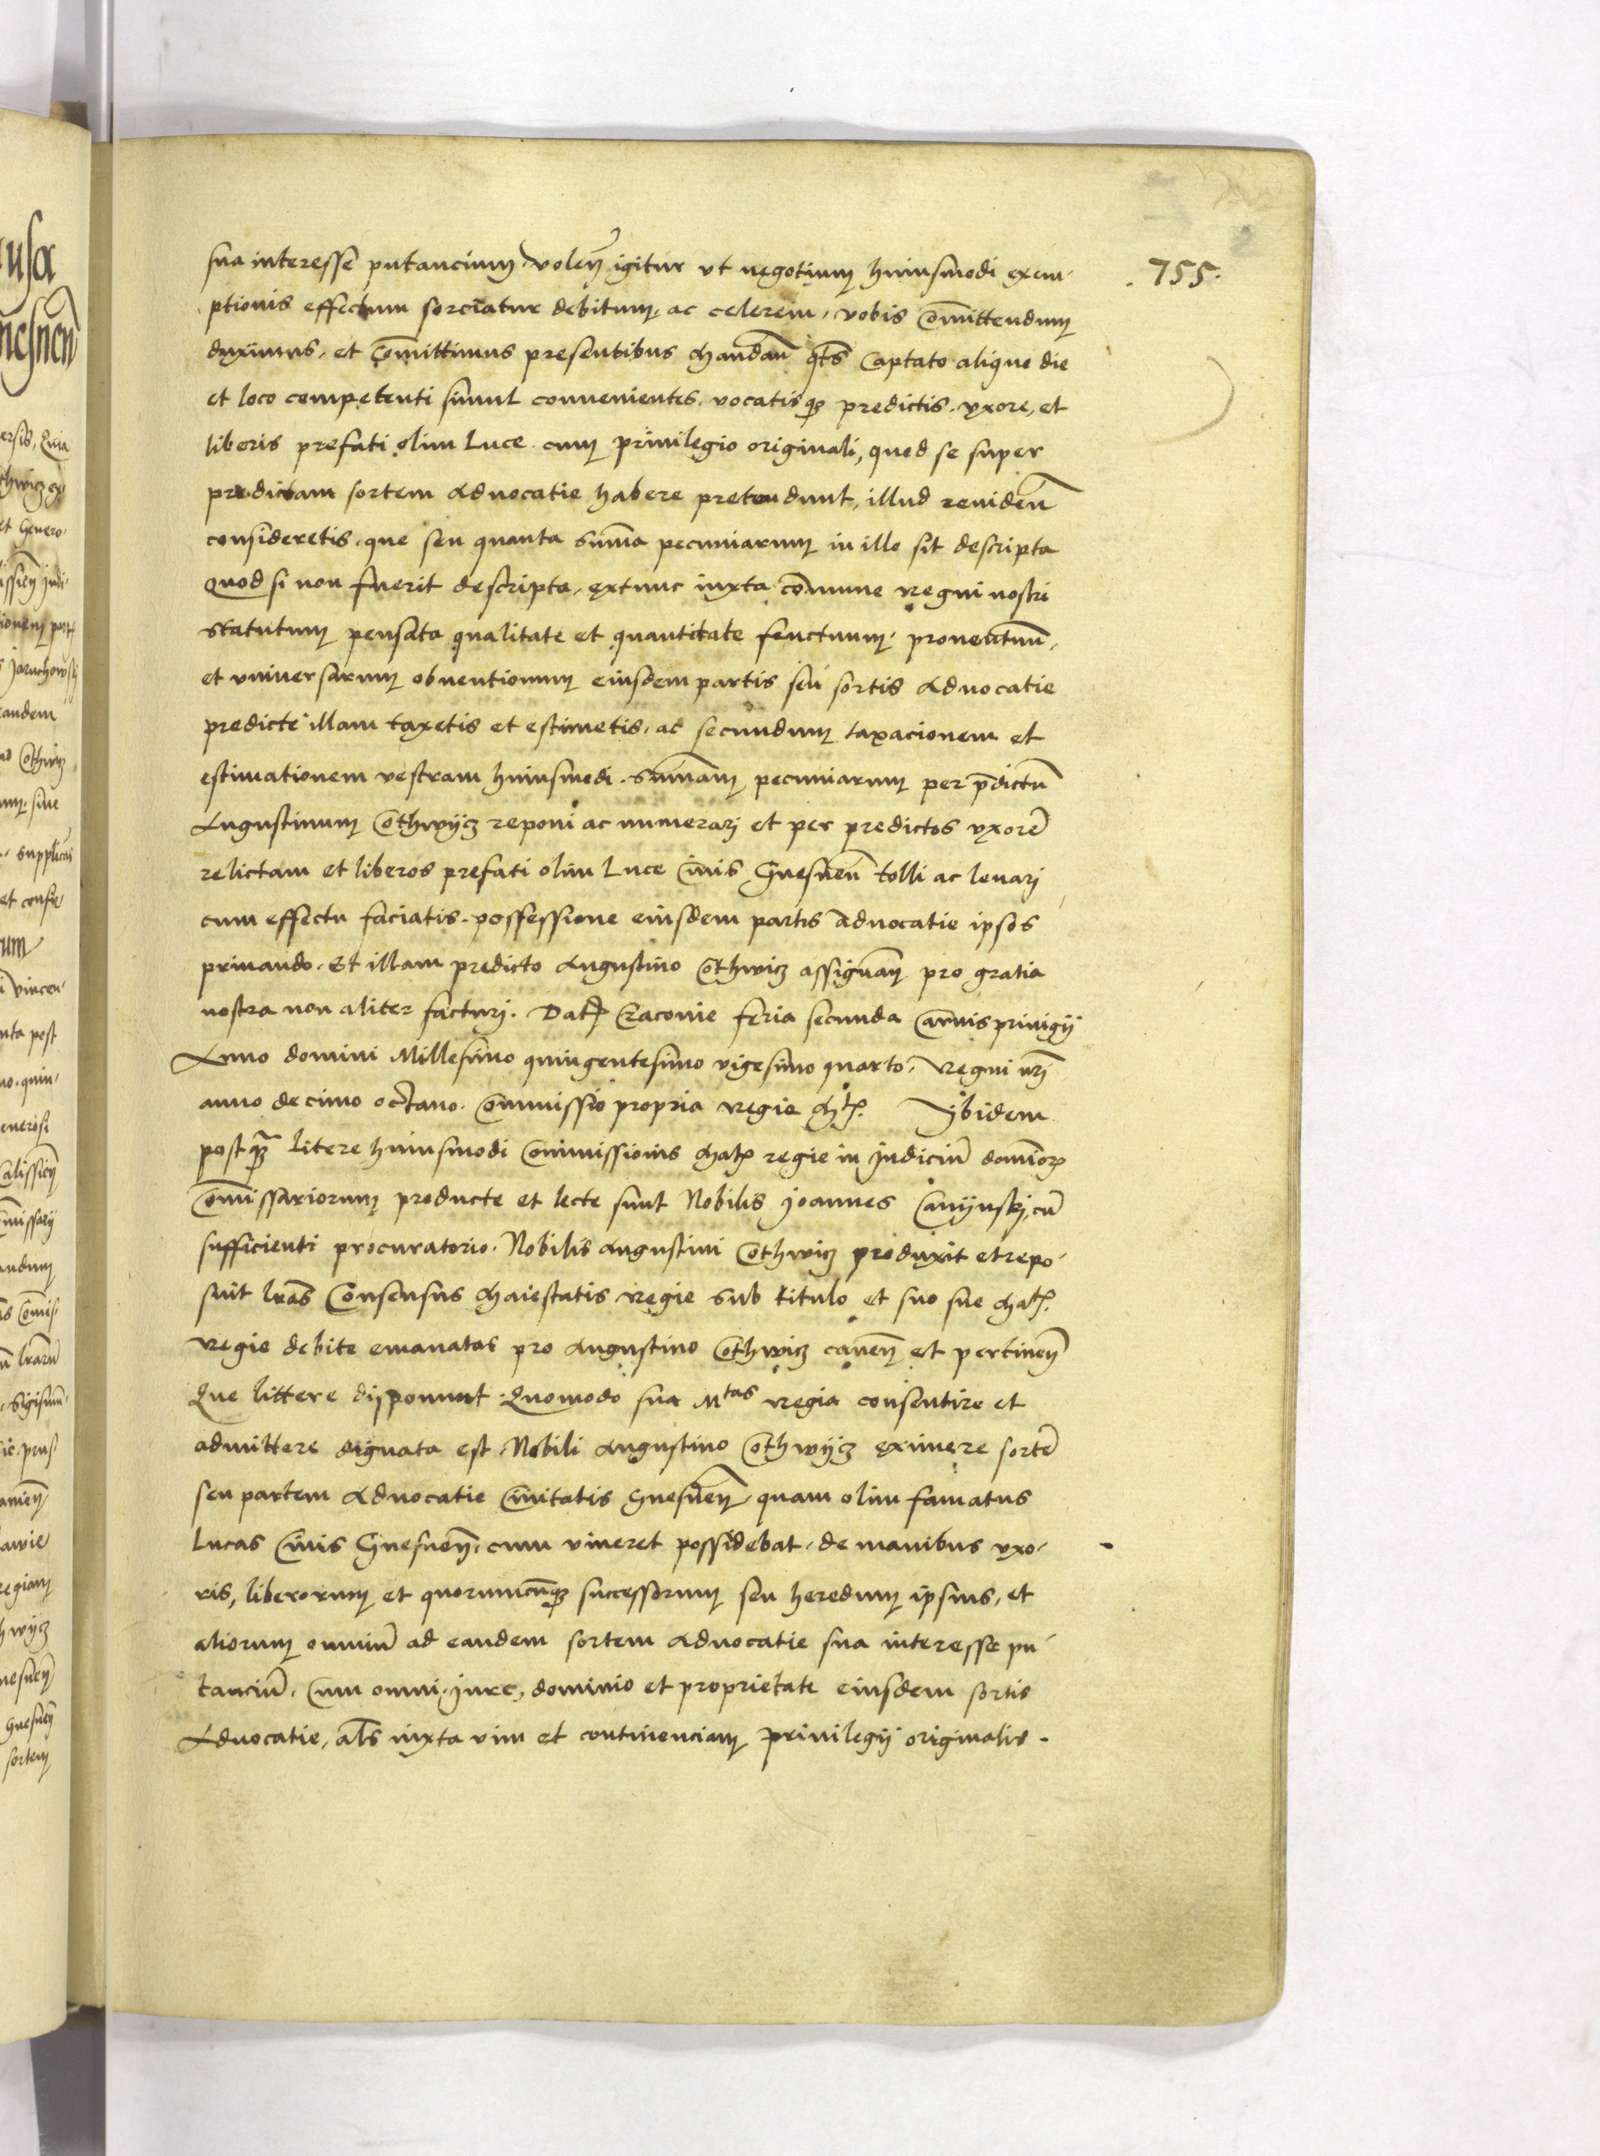 755.
sua interesse putancium. volen igitur ut negotium huiusmodi exem-
ptionis effectum sorciatur debitum, ac celerem, vobis Committendum
duximus, et Committimus presentibus mandan qts Captato aliquo die
et loco competenti simul convenientes, vocatisque predictis, uxore, et
liberis prefati olim Luce cum privilegio originali, quod se super
predictam sortem Advocatie habere pretendunt, illud reviden
consideretis, que seu quanta sūma pecuniarum in illo sit descripta
Quod si non fuerit descripta, extunc iuxta commune Regni nostri
statutum pensata qualitate et quantitate fructuum, proventuum,
et universarum obventionum eiusdem partis seu sortis Advocatie
predicte illam taxetis et estimetis, ac secundum taxacionem et
estimationem vestram huiusmodi, sūmam pecuniarum per p̄dictū
Augustinum Cothwycz reponi ac numerari et per predictos uxorē
relictam et liberos prefati olim Luce Civis Gnesnen̄ tolli ac levari
cum effectu faciatis, possessione eiusdem partis Advocatie ipsos
privando. Et illam predicto Augustino Cothwicz assignan̄ pro gratia
nostra non aliter facturi. Dat Cracovie feria secunda Carnisprivigii
Anno domini Millesimo quingentesimo vigesimo quarto. Regni nr̄i
anno decimo octavo. Commissio propria Regie Mtis. Ibidem
postquam litere huiusmodi Commissionis Matis regie in Iudiciū domiorum
Commissariorum producte et lecte sunt Nobilis Joannes cū
sufficienti procuratorio, Nobilis Augustini Cothwicz produxit et repo-
suit lras Consensus Maiestatis Regie sub titulo et suo sue Matis
Regie debite emanatas pro Augustino Cothwicz caven̄ et pertinen̄
Que littere disponunt Quomodo sua Mtas Regia consentire et
admittere dignata est Nobili Augustino Cothwycz eximere sortē
seu partem Advocatie Civitatis Gnesnen̄, quam olim famatus
Lucas Civis Gnesnen̄, cum viveret possidebat, de manibus uxo-
ris, liberorum et quorumcūque successorum seu heredum ipsius, et
aliorum omniū ad eandem sortem Advocatie sua interesse pu-
tanciū, Cum omni iure, dominio et proprietate eiusdem sortis
Advocatie, als iuxta vim et continenciam privilegii originalis.